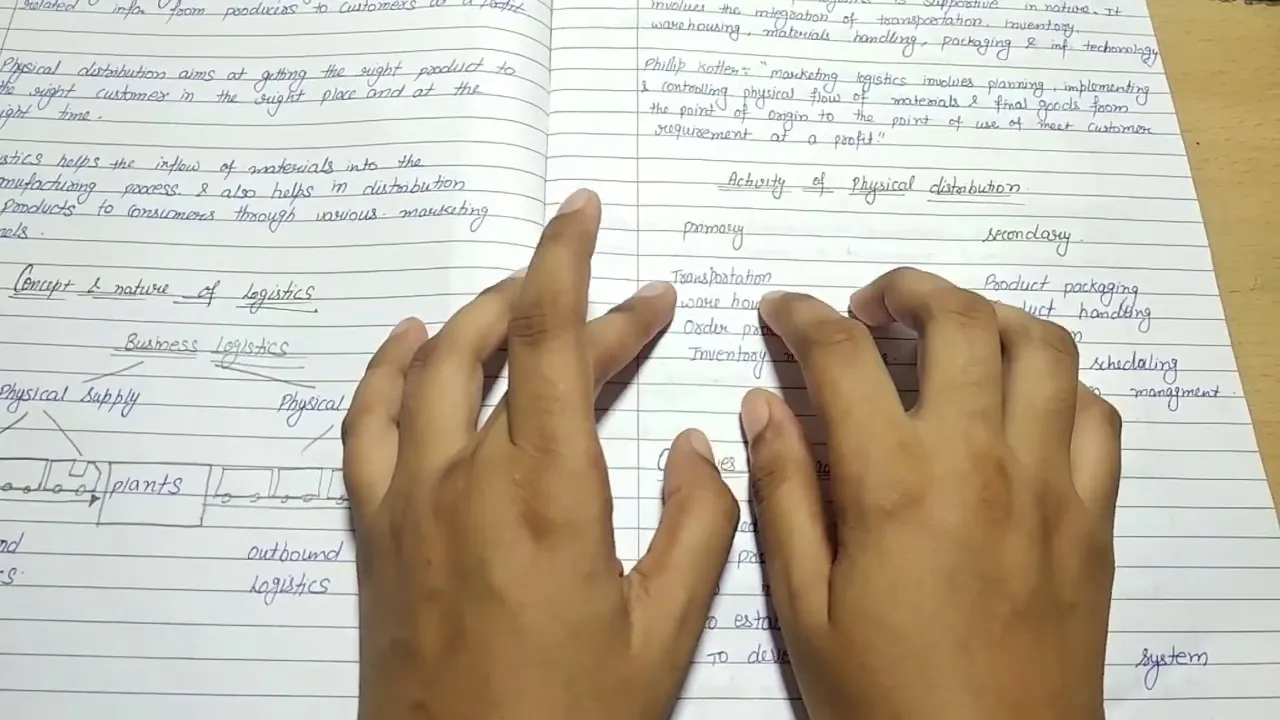 related infr. from producers to customers as a
Physical distribution aims at getting the right product to
the right customer in the right place and at the
right time.
stics helps the inflow of materials into the
mufacturing process & also helps in distribution
products to consumers through various marketing
nels.
Concept & nature of Logistics
Business Logistics
Physical Supply
Physical
plants
outbound
Logistics
is supportive in nature. It
involves the integration of transportation, inventory,
warehousing, materials handling, packaging & inf. techonology
Phillip Kotler:- "marketing logistics involves planning, implementing
& controlling physical flow of materials & final goods from
the point of origin to the point of use of meet customer
requirement at a profit."
Activity of Physical distribution
primary
secondary
Transportation
Product packaging
ware hou
duct handling
Order pro
Inventory
schedaling
mangment
TO deve
system